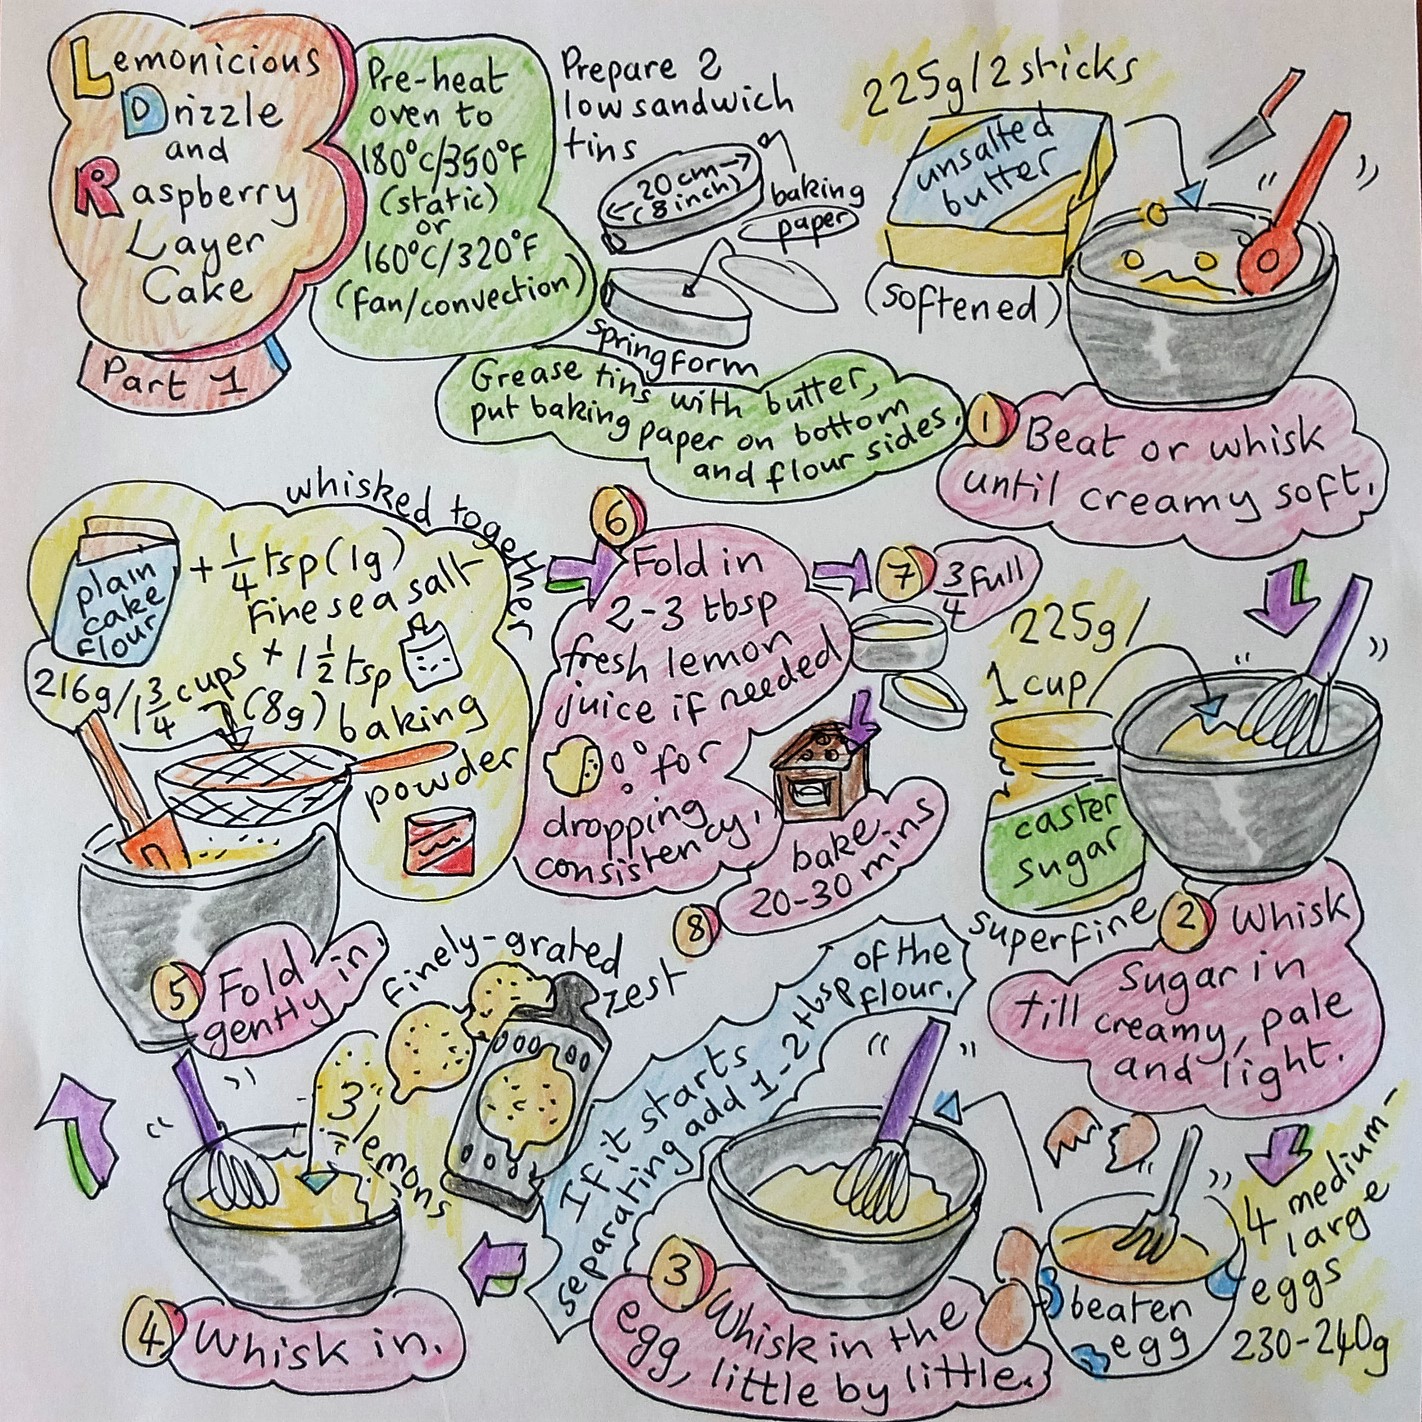 Lemonicious
Drizzle
and
Raspberry
Layer
Cake
Part 1
Pre-heat
oven to
180°C/350°F
(static)
or
160°C/320°F
(fan/convection)
Prepare 2
low sandwich
tins
20cm
(8 inch)
baking
paper
springform
Grease tins with butter,
put baking paper on bottom
and flour sides.
225g/2 sticks
unsalted
butter
(softened)
1 Beat or whisk
until creamy soft.
225g/
1 cup
caster
sugar
superfine
2 Whisk
sugar in
till creamy, pale
and light.
4 medium-
large
eggs
230-240g
beaten
egg
3 Whisk in the
egg, little by little.
If it starts
separating add 1-2 tbsp
of the
flour.
finely-grated
zest
3 lemons
4 Whisk in.
whisked together
plain
cake
flour
+ 1/4 tsp (1g)
fine sea salt
216g/1 3/4 cups
+ 1 1/2 tsp
(8g) baking
powder
5 Fold
gently in.
6
Fold in
2-3 tbsp
fresh lemon
juice if needed
for
dropping
consistency.
7 3/4 full
8
bake
20-30 mins